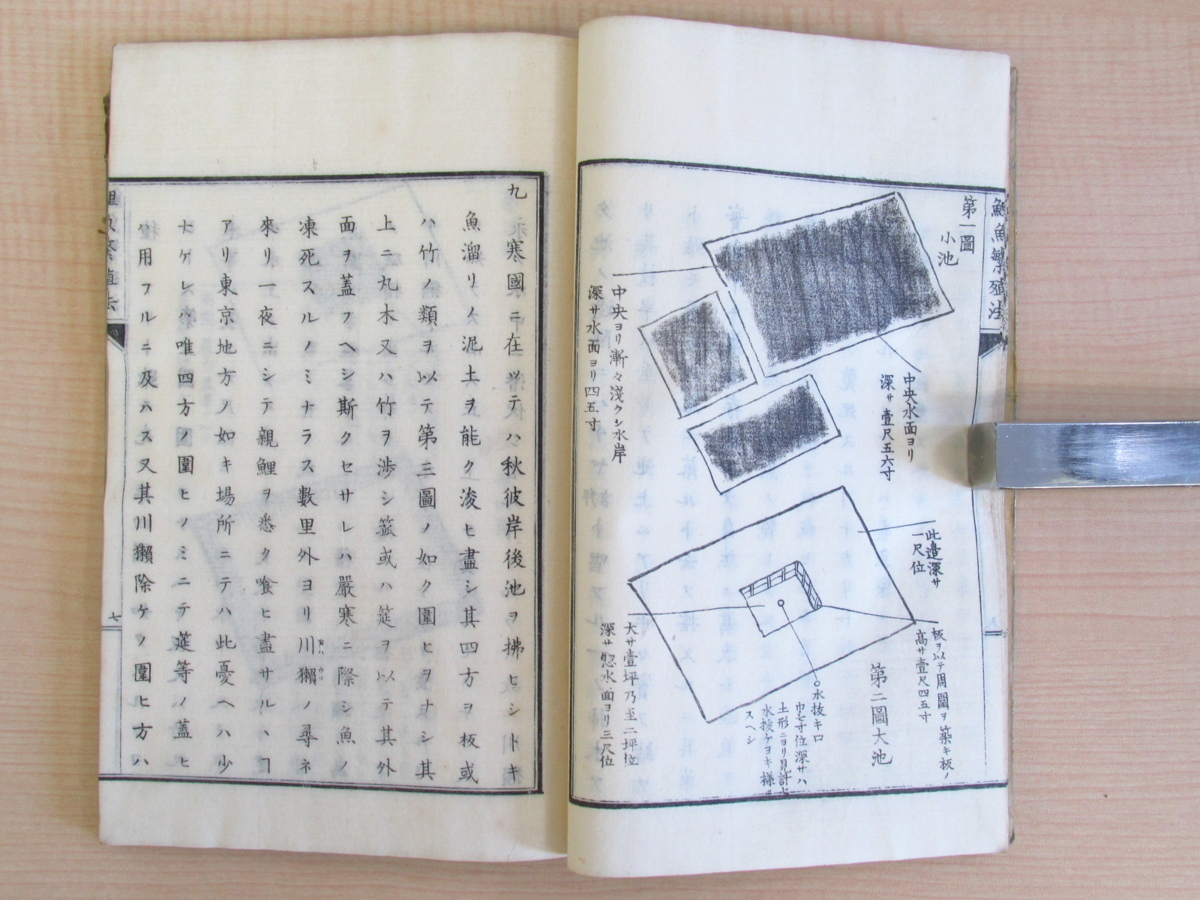 鯉魚繁殖法
第一圖
小池
中央水面ヨリ
深サ壹尺五六寸
中央ヨリ漸々淺クシ水岸
深サ水面ヨリ四五寸
此邉深サ
一尺位
板ヲ以テ周圍ヲ築キ板ノ
高サ壹尺四五寸
第二圖大池
水抜キ口
巾七寸位深サハ
土形ニヨリ見計
水抜ケヨキ様ニ
スヘシ
大サ壹坪乃至二坪位
深サ惣水面ヨリ三尺位
九 寒國ニ在ツテハ秋彼岸後池ヲ拂ヒシトキ
魚溜リノ泥土ヲ能ク浚ヒ盡シ其四方ヲ板或
ハ竹ノ類ヲ以テ第三圖ノ如ク圍ヒヲナシ其
上ニ丸木又ハ竹ヲ渉シ菰或ハ筵ヲ以テ其外
面ヲ蓋フヘシ斯クセサレハ嚴寒ニ際シ魚ノ
凍死スルノミナラス數里外ヨリ川獺ノ尋ネ
來リ一夜ニシテ親鯉ヲ悉ク喰ヒ盡サルヽヿ
アリ東京地方ノ如キ場所ニテハ此憂ヘハ少
ナケレハ唯四方ノ圍ヒノミニテ筵等ノ蓋ヒ
ハ用フルニ及ハス又其川獺除ケノ圍ヒ方ハ
七